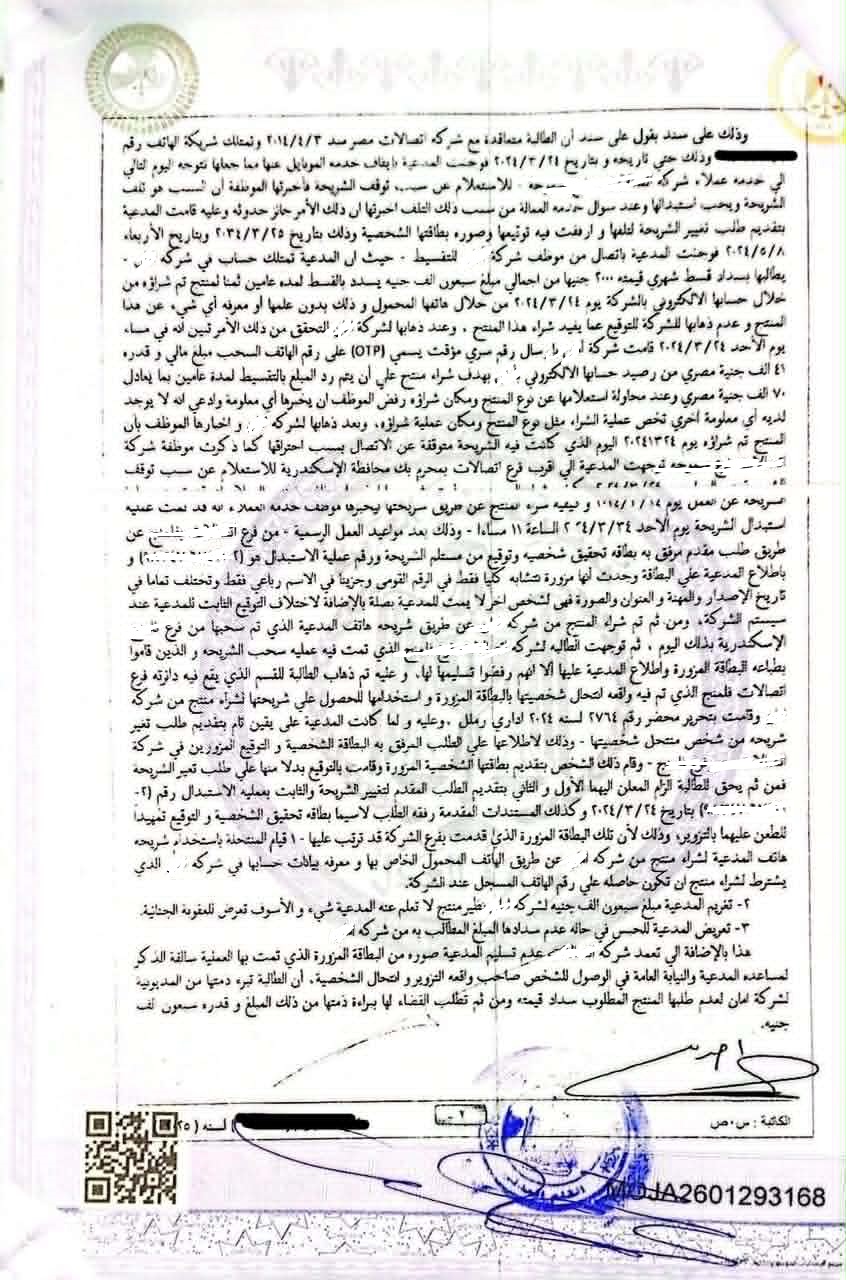 وذلك على سند بقول على سند أن الطالبة متعاقدة مع شركه اتصالات مصر منذ ٢٠١٤/٤/٣ وتمتلك شريكة الهاتف رقم
وذلك حتي تاريخه و بتاريخ ٢٠٢٤/٣/٢٤ فوجئت المدعية بإيقاف خدمه الموبايل عنها مما جعلها تتوجه اليوم لتالي
الي خدمه عملاء شركه للاستعلام عن سبب توقف الشريحة فأخبرتها الموظفة أن السبب هو تلف
الشريحة ويجب استبدالها وعند سوال خدمه العمالة من سبب ذلك التلف اخبرتها ان ذلك الأمر جائز حدوثه وعليه قامت المدعية
بتقديم طلب تغيير الشريحة لتلفها و ارفقت فيه توقيعها وصوره بطاقتها الشخصية وذلك بتاريخ ٢٠٣٤/٣/٢٥ وبتاريخ الأربعاء
٢٠٢٤/٥/٨ فوجئت المدعية باتصال من موظف شركة للتقسيط - حيث ان المدعية تمتلك حساب في شركه -
يطالبها بسداد قسط شهري قيمته ٢٠٠٠ جنيها من اجمالي مبلغ سبعون الف جنيه يسدد بالقسط لمده عامين ثمنا لمنتج تم شراؤه من
خلال حسابها الالكتروني بالشركة يوم ٢٠٢٤/٣/٢٤ من خلال هاتفها المحمول و ذلك بدون علمها أو معرفه أي شيء عن هذا
المنتج و عدم ذهابها للشركة للتوقيع عما يفيد شراء هذا المنتج . وعند ذهابها لشركة التحقق من ذلك الأمر تبين أنه في مساء
يوم الأحد ٢٠٢٤/٣/٢٤ قامت شركة بإرسال رقم سري مؤقت يسمي (OTP) على رقم الهاتف السحب مبلغ مالي و قدره
٤١ الف جنية مصري من رصيد حسابها الالكتروني بهدف شراء منتج علي أن يتم رد المبلغ بالتقسيط لمدة عامين بما يعادل
٧٠ الف جنية مصري وعند محاولة استعلامها عن نوع المنتج ومكان شراؤه رفض الموظف ان يخبرها أي معلومة وادعي انه لا يوجد
لديه أي معلومة أخري تخص عملية الشراء مثل نوع المنتج ومكان عملية شراؤه. وبعد ذهابها لشركة و اخبارها الموظف بأن
المنتج تم شراؤه يوم ٢٠٢٤١٣٢٤ اليوم الذي كانت فيه الشريحة متوقفة عن الاتصال بسبب احتراقها كما ذكرت موظفة شركة
توجهت المدعية الي اقرب فرع اتصالات بمحرم بك محافظة الإسكندرية للاستعلام عن سبب توقف
الشريحة عن العمل يوم و كيفيه شراء المنتج عن طريق شريحتها ليخبرها موظف خدمه العملاء انه قد تمت عمليه
استبدال الشريحة يوم الاحد الساعة ١١ مساءا - وذلك بعد مواعيد العمل الرسمية - من فرع عن
طريق طلب مقدم مرفق به بطاقه تحقيق شخصيه وتوقيع من مستلم الشريحة ورقم عملية الاستبدال هو و
باطلاع المدعية علي البطاقة وجدت أنها مزورة تتشابه كليا فقط في الرقم القومي وجزيئا في الاسم رباعي فقط وتختلف تماما في
تاريخ الإصدار والمهنة و العنوان والصورة فهي لشخص اخر لا يمت للمدعية بصلة بالإضافة لاختلاف التوقيع الثابت للمدعية عند
سيستم الشركة، ومن ثم تم شراء المنتج من شركه عن طريق شريحه هاتف المدعية الذي تم سحبها من فرع
الإسكندرية بذلك اليوم . ثم توجهت الطالبه لشركه الذي تمت فيه عمليه سحب الشريحه و الذين قاموا
بطباعه البطاقة المزورة واطلاع المدعية عليها ألا انهم رفضوا تسليمها لها. و عليه تم ذهاب الطالبة للقسم الذي يقع فيه دائرته فرع
اتصالات فلمنج الذي تم فيه واقعه انتحال شخصيتها بالبطاقة المزورة و استخدامها للحصول علي شريحتها لشراء منتج من شركه
وقامت بتحرير محضر رقم ٢٧٦٤ لسنه ٢٠٢٤ اداري رملل .وعليه و لما كانت المدعية على يقين تام بتقديم طلب تغير
شريحه من شخص منتحل شخصيتها - وذلك لاطلاعها علي الطلب المرفق به البطاقة الشخصية و التوقيع المزورين في شركة
- وقام ذلك الشخص بتقديم بطاقتها الشخصية المزورة وقامت بالتوقيع بدلا منها علي طلب تغير الشريحة
فمن ثم يحق للطالبة الزام المعلن اليهما الأول و الثاني بتقديم الطلب المقدم لتغيير الشريحة والثابت بعمليه الاستبدال رقم (٢-
) بتاريخ ٢٠٢٤/٣/٢٤ و كذلك المستندات المقدمة رفقه الطلب لاسيما بطاقه تحقيق الشخصية و التوقيع تمهيداً
للطعن عليهما بالتزوير، وذلك لأن تلك البطاقة المزورة الذي قدمت بفرع الشركة قد ترتب عليها - ١ قيام المنتحلة باستخدام شريحه
هاتف المدعية لشراء منتج من شركه عن طريق الهاتف المحمول الخاص بها و معرفه بيانات حسابها في شركه الذي
يشترط لشراء منتج ان تكون حاصله علي رقم الهاتف المسجل عند الشركة.
٢- تغريم المدعية مبلغ سبعون الف جنيه لشركه نظير منتج لا تعلم عنه المدعية شيء و الأسوف تعرض للعقوبة الجنائية.
٣- تعويض المدعية للحبس في حاله عدم سدادها المبلغ المطالب به من شركه
هذا بالإضافة الي تعمد شركه عدم تسليم المدعية صوره من البطاقة المزورة الذي تمت بها العملية سالفة الذكر
لمساعده المدعية والنيابة العامة في الوصول للشخص صاحب واقعه التزوير و انتحال الشخصية. أن الطالبة تبرء ذمتها من المديونية
لشركة امان لعدم طلبها المنتج المطلوب سداد قيمته ومن ثم تطلب القضاء لها ببراءة ذمتها من ذلك المبلغ و قدره سبعون الف
جنيه.
الكاتبة : س٠ص
٢
) لسنه (
MOJA2601293168